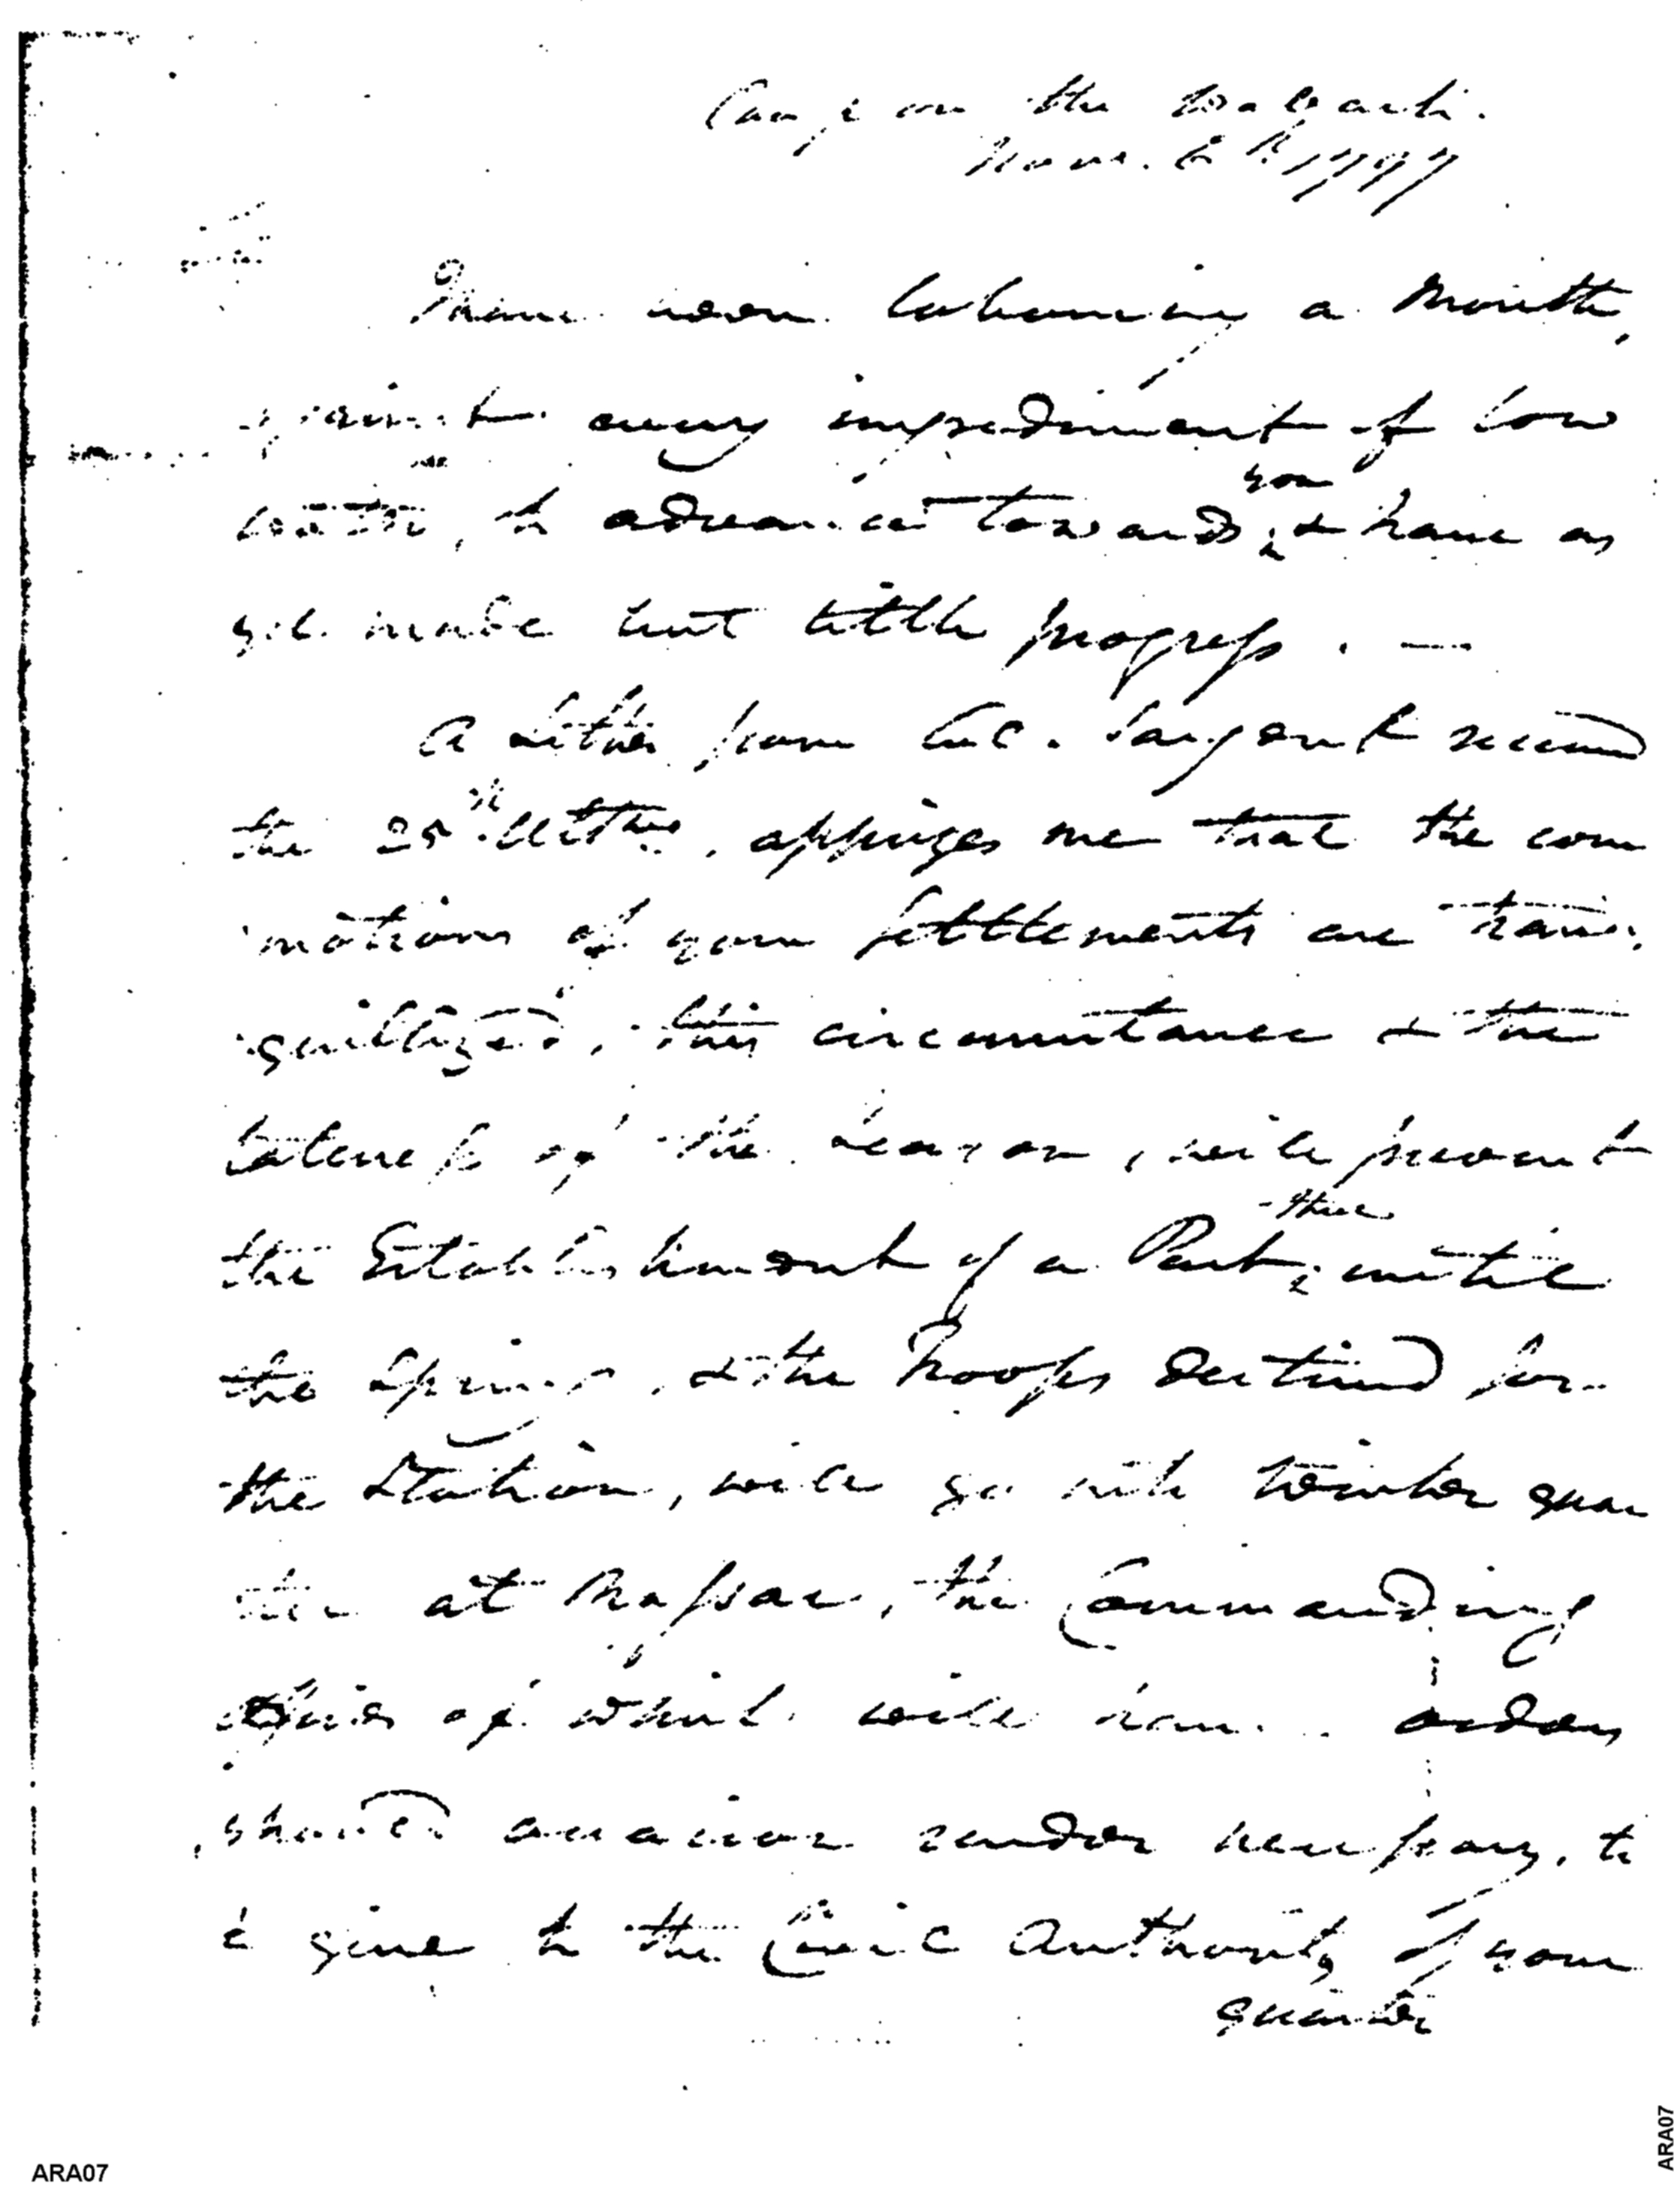 Camp on the Wabash.
Novr. 6th. 1797
I have been labouring a Month,
against every impediment of low
water, to advance towards you, & have as
yet made but little progress. —
A Letter from Col. Sargent received
the 25th. Ultmo, apprizes me that the com
motions of your settlements are tran
quillized, this circumstance & the
lateness of the Season, will prevent
the Establishment of a Post there, until
the Spring, & the Troops destined for
the Station, will go into Winter quar
ters at Massac, the Commanding
officer of which will have orders
should occasion render necessary, to
give to the Civil Authority of your
quarter
ARA07
ARA07